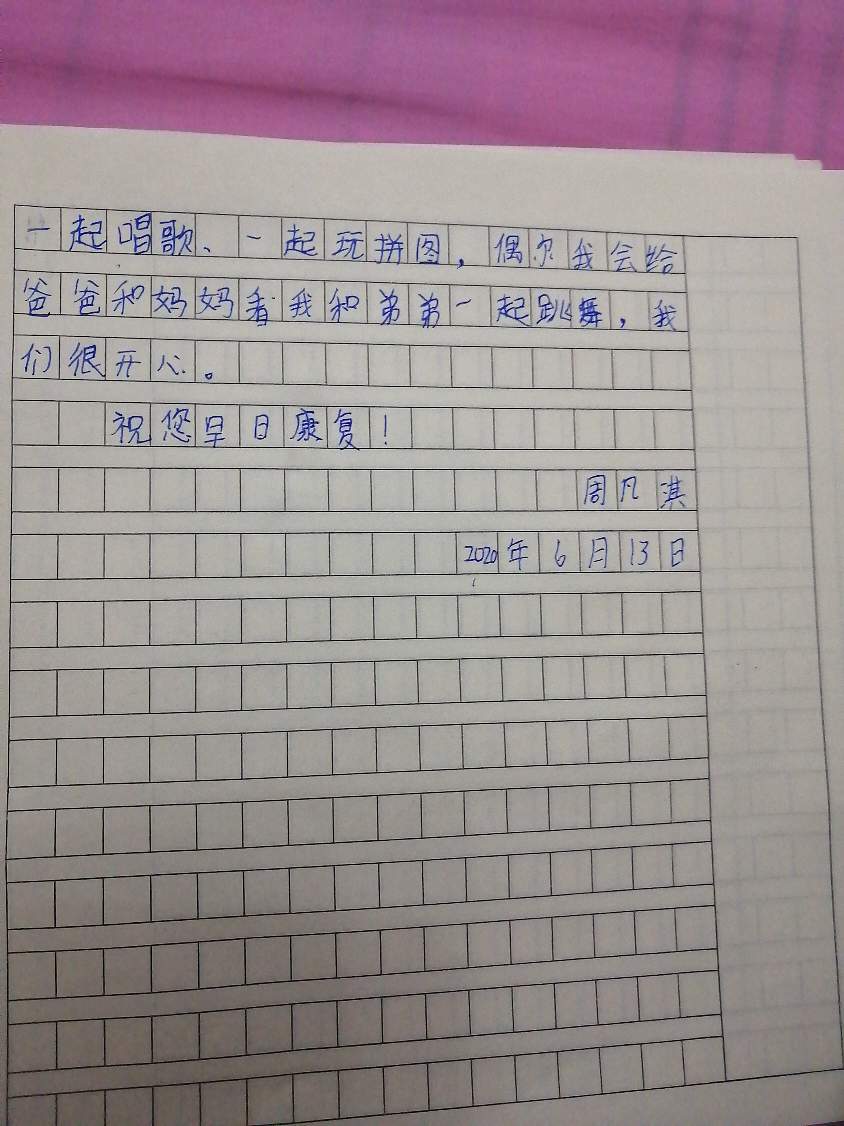 一起唱歌、一起玩拼图，偶尔我会给
爸爸和妈妈看我和弟弟一起跳舞，我
们很开心。
祝您早日康复！
周凡淇
2020年6月13日